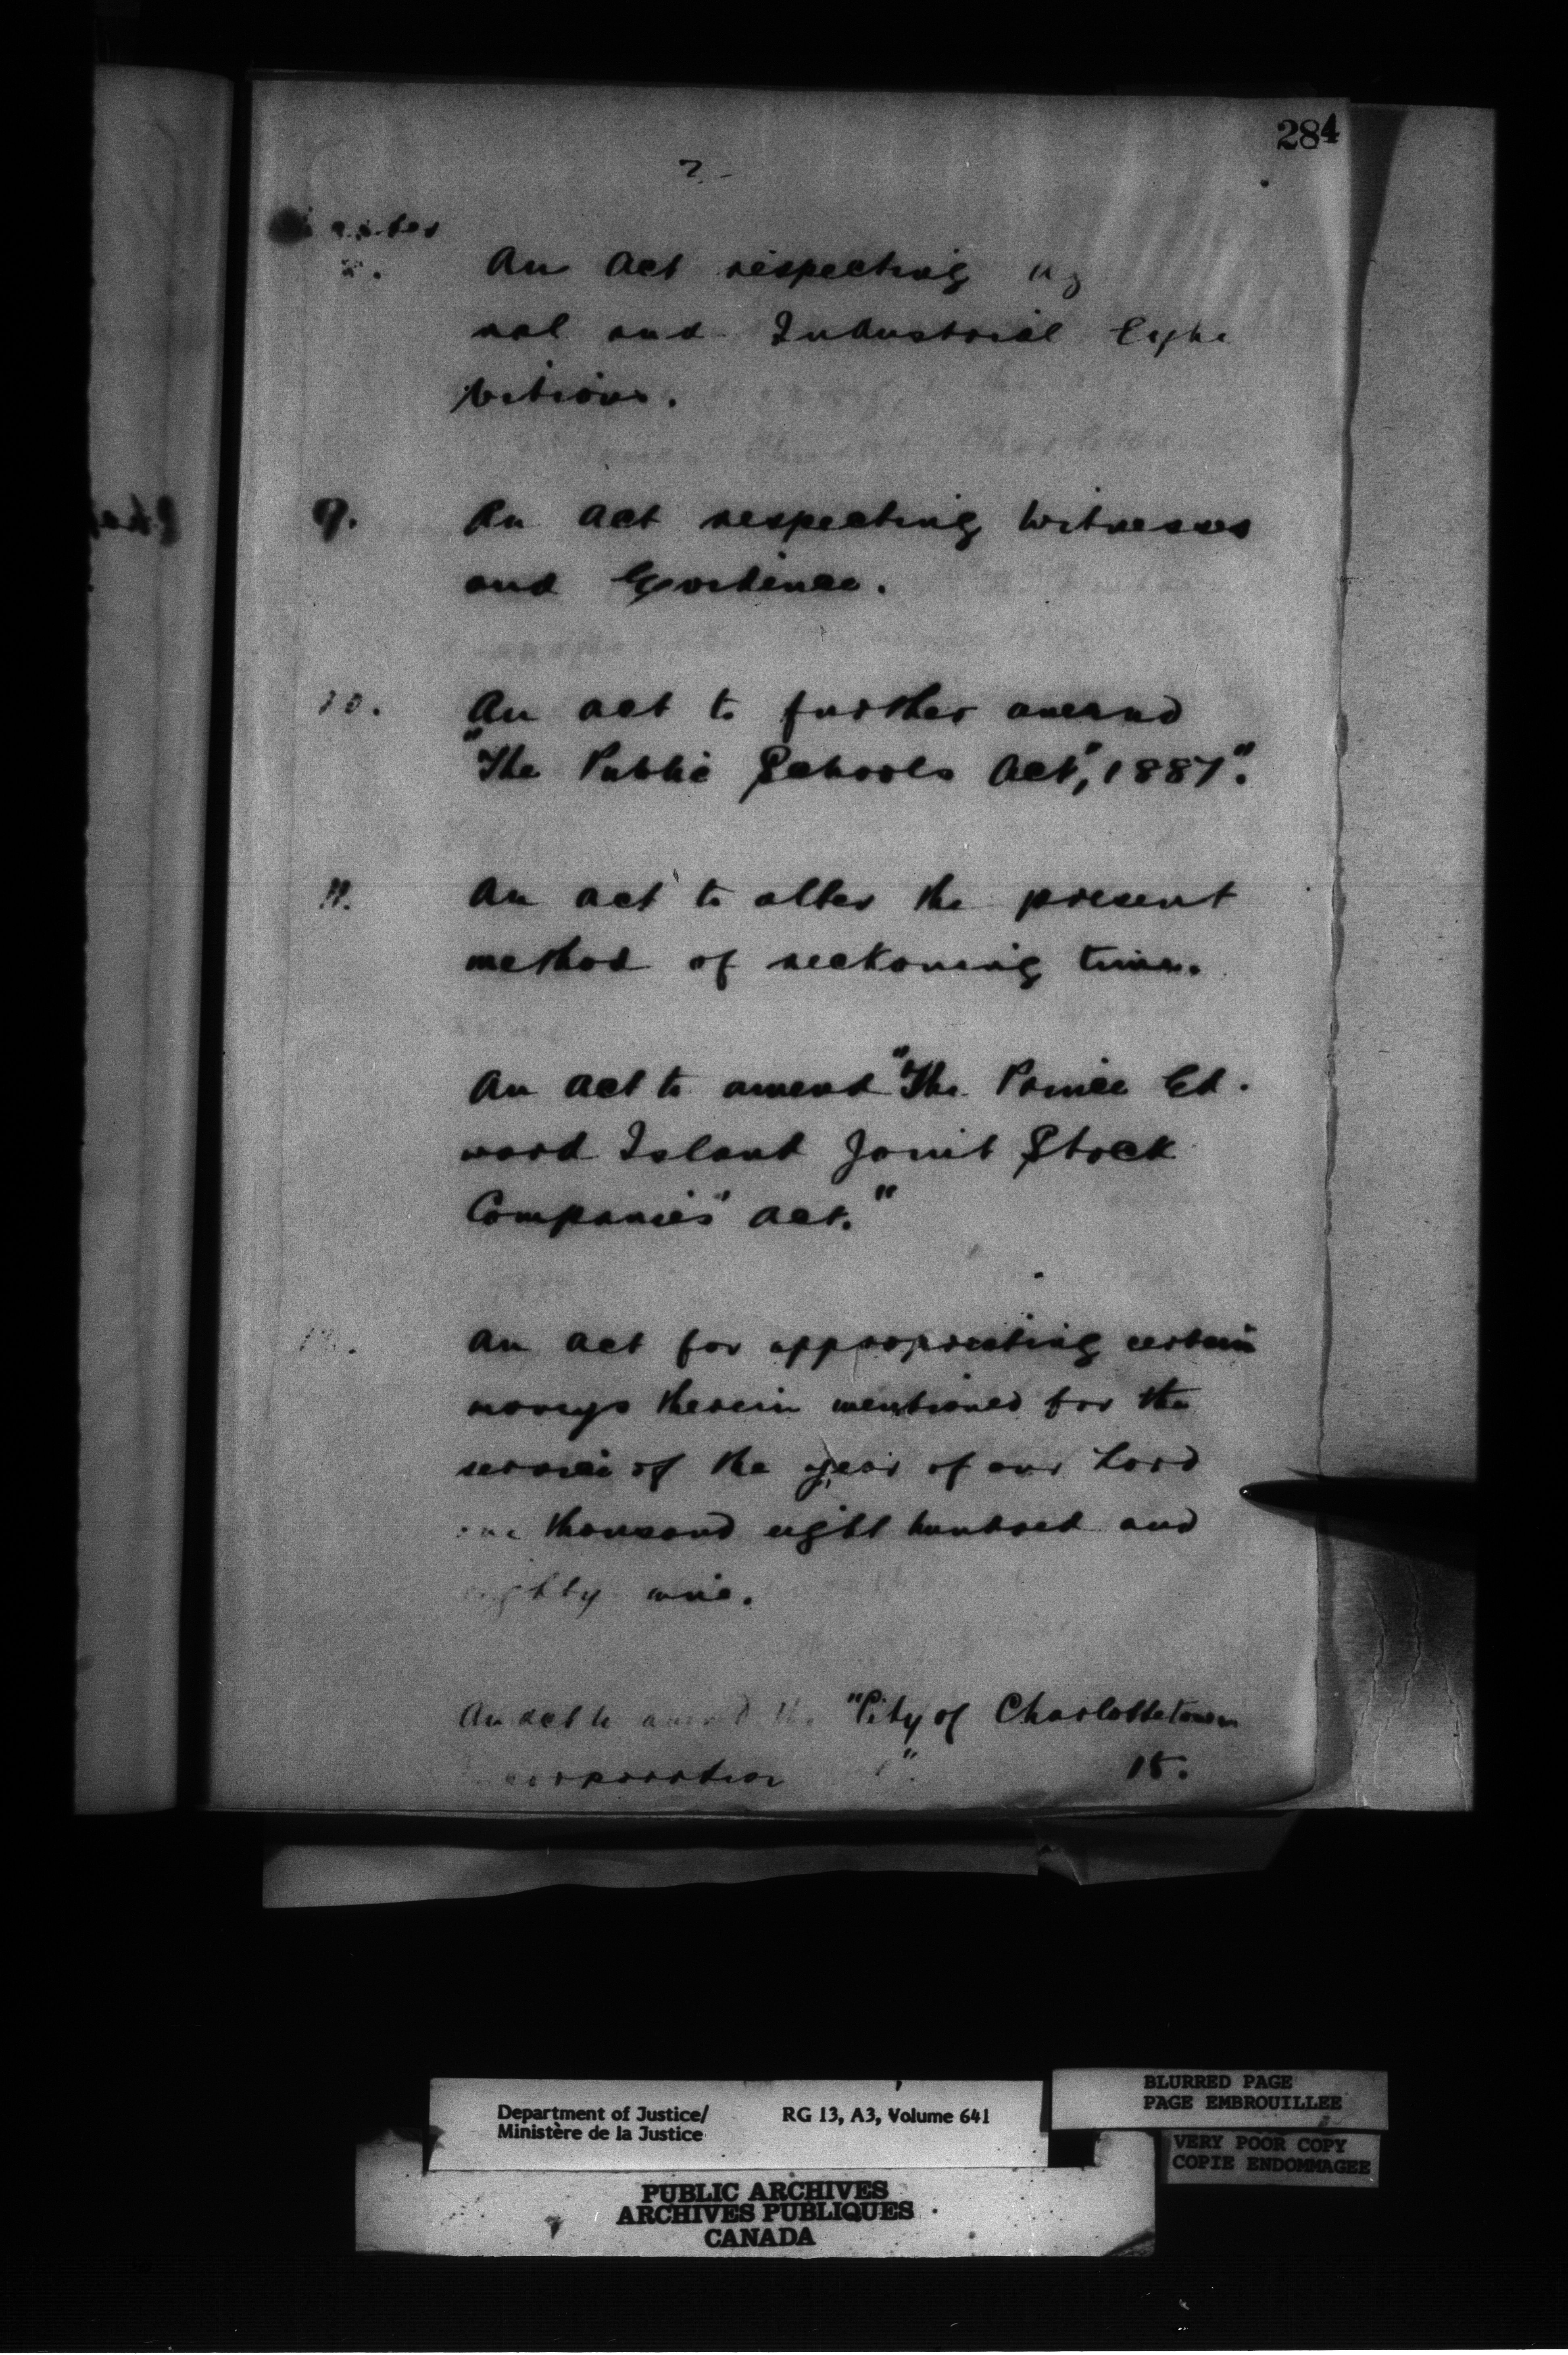 284
2.
An Act respecting Ag
nal and Industrial Exhi
bitions.
9. An Act respecting Witnesses
and Evidence.
10. An Act to further amend
"The Public Schools Act", 1887".
11. An Act to alter the present
method of reckoning time.
An Act to amend "The Prince Ed.
ward Island Joint Stock
Companies' Act."
An Act for appropriating certain
moneys therein mentioned for the
service of the year of our Lord
one thousand eight hundred and
eighty nine.
An Act to amend the "City of Charlottetown
Incorporation
15.
Department of Justice/
Ministère de la Justice
RG 13, A3, Volume 641
BLURRED PAGE
PAGE EMBROUILLEE
VERY POOR COPY
COPIE ENDOMMAGEE
PUBLIC ARCHIVES
ARCHIVES PUBLIQUES
CANADA